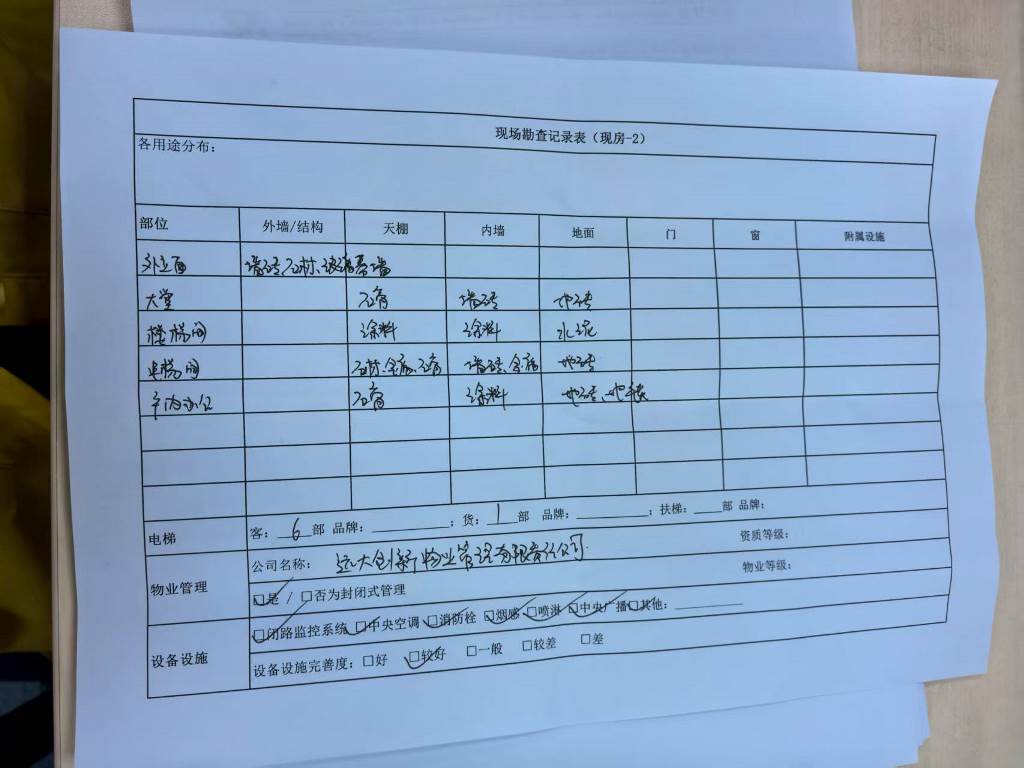 现场勘查记录表（现房-2）
各用途分布：
部位 外墙/结构 天棚 内墙 地面 门 窗 附属设施
外立面 墙砖、石材、玻璃幕墙
大堂 石膏 墙砖 地砖
楼梯间 涂料 涂料 水泥
电梯间 石材、金属、石膏 墙砖、金属 地砖
户内办公 石膏 涂料 地砖、地毯
电梯 客：6部 品牌：________；货：1部 品牌：________；扶梯：____部 品牌：
物业管理 公司名称：远大创新物业管理有限责任公司 资质等级：
☑是 / □否为封闭式管理 物业等级：
设备设施 ☑闭路监控系统 ☑中央空调 ☑消防栓 ☑烟感 ☑喷淋 ☑中央广播 □其他：________
设备设施完善度：□好 ☑较好 □一般 □较差 □差